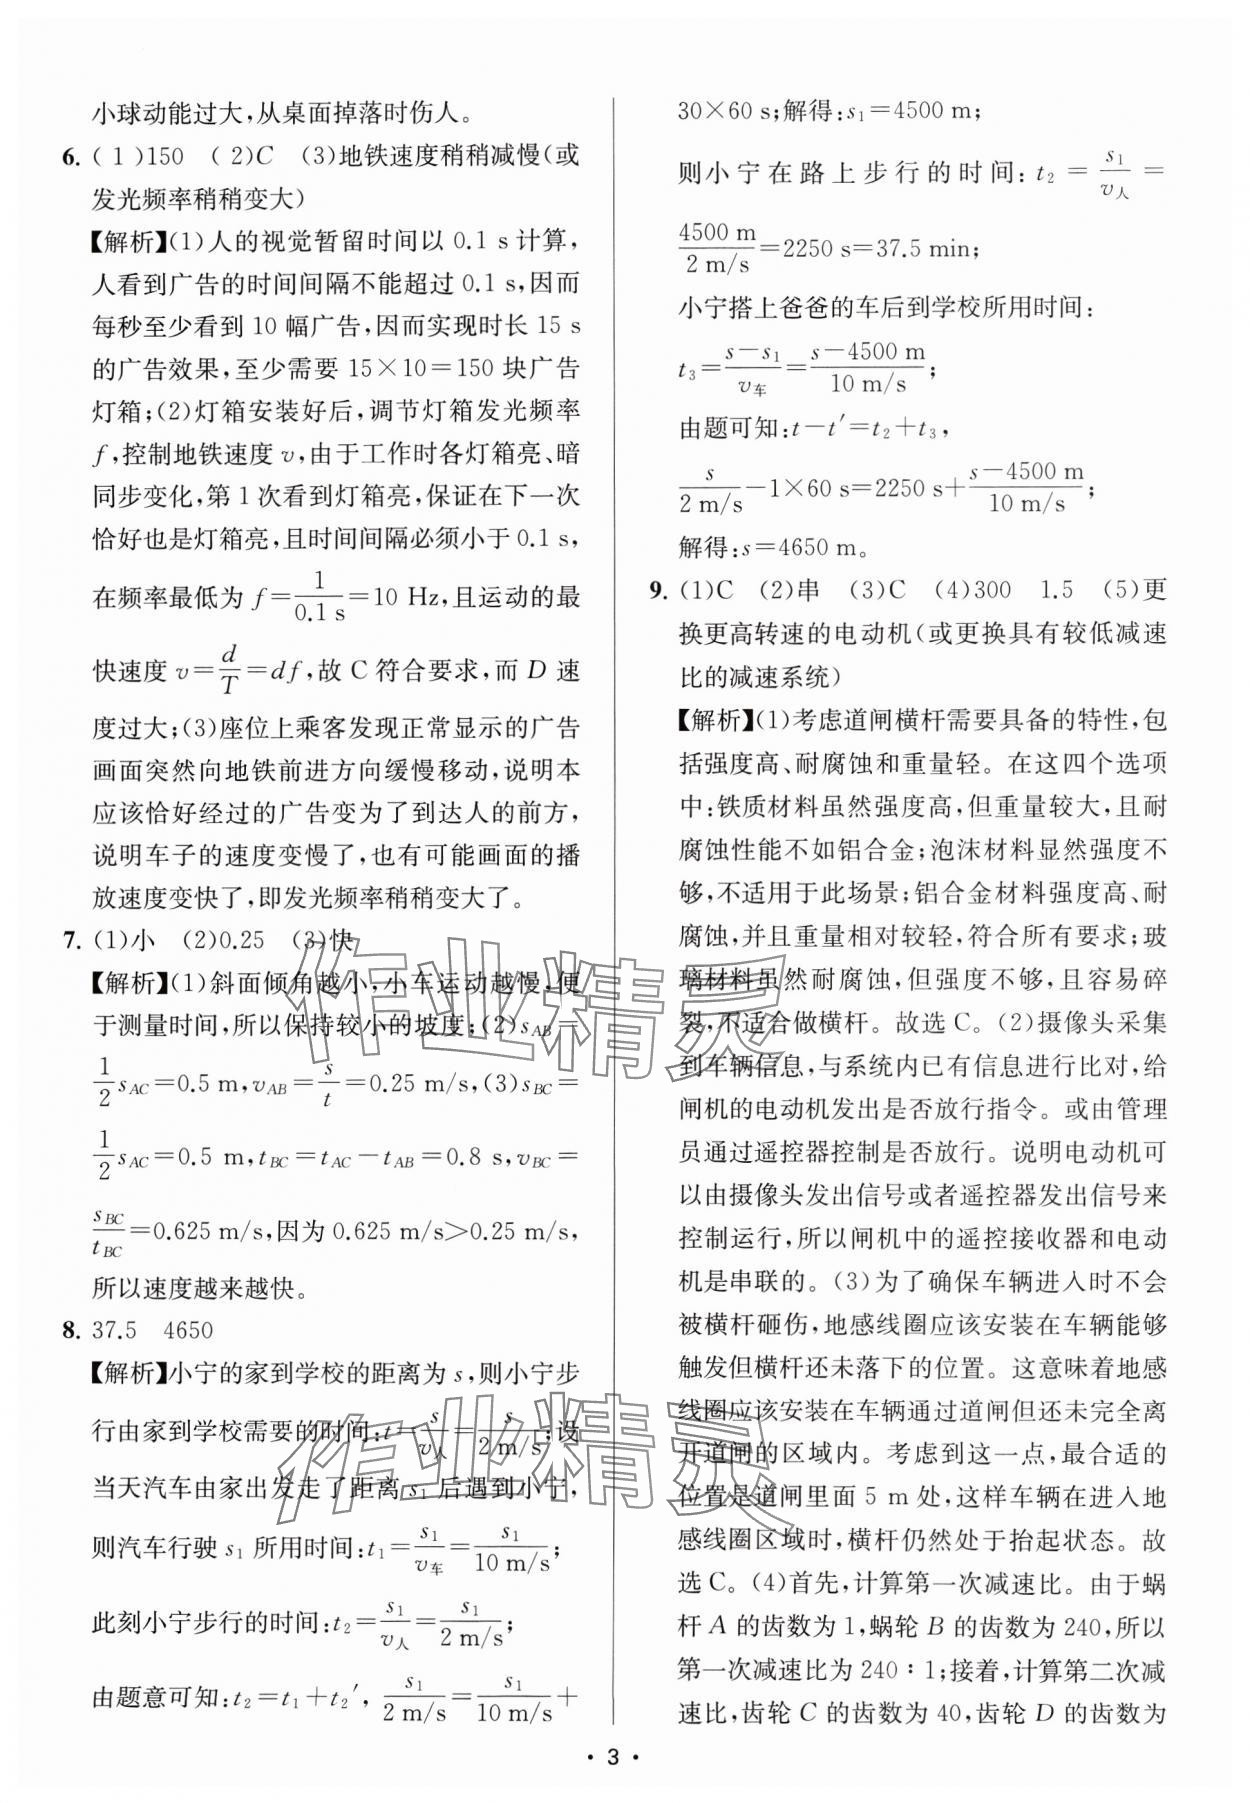 小球动能过大,从桌面掉落时伤人。
6. (1)150 (2)C (3)地铁速度稍稍减慢(或
发光频率稍稍变大)
【解析】(1)人的视觉暂留时间以 0.1 s 计算,
人看到广告的时间间隔不能超过 0.1 s,因而
每秒至少看到 10 幅广告,因而实现时长 15 s
的广告效果,至少需要 15×10=150 块广告
灯箱;(2)灯箱安装好后,调节灯箱发光频率
f,控制地铁速度 v,由于工作时各灯箱亮、暗
同步变化,第 1 次看到灯箱亮,保证在下一次
恰好也是灯箱亮,且时间间隔必须小于 0.1 s,
在频率最低为 f=1/0.1 s=10 Hz,且运动的最
快速度 v=d/T=df,故 C 符合要求,而 D 速
度过大;(3)座位上乘客发现正常显示的广告
画面突然向地铁前进方向缓慢移动,说明本
应该恰好经过的广告变为了到达人的前方,
说明车子的速度变慢了,也有可能画面的播
放速度变快了,即发光频率稍稍变大了。
7. (1)小 (2)0.25 (3)快
【解析】(1)斜面倾角越小,小车运动越慢,便
于测量时间,所以保持较小的坡度;(2)sAB=
1/2 sAC=0.5 m,vAB=s/t=0.25 m/s,(3)sBC=
1/2 sAC=0.5 m,tBC=tAC-tAB=0.8 s,vBC=
sBC/tBC=0.625 m/s,因为 0.625 m/s>0.25 m/s,
所以速度越来越快。
8. 37.5 4650
【解析】小宁的家到学校的距离为 s,则小宁步
行由家到学校需要的时间:t=s/v人=s/2 m/s;设
当天汽车由家出发走了距离 s1 后遇到小宁,
则汽车行驶 s1 所用时间:t1=s1/v车=s1/10 m/s;
此刻小宁步行的时间:t2=s1/v人=s1/2 m/s;
由题意可知:t2=t1+t2′,s1/2 m/s=s1/10 m/s+
30×60 s;解得:s1=4500 m;
则小宁在路上步行的时间:t2=s1/v人=
4500 m/2 m/s=2250 s=37.5 min;
小宁搭上爸爸的车后到学校所用时间:
t3=s-s1/v车=s-4500 m/10 m/s;
由题可知:t-t′=t2+t3,
s/2 m/s-1×60 s=2250 s+s-4500 m/10 m/s;
解得:s=4650 m。
9. (1)C (2)串 (3)C (4)300 1.5 (5)更
换更高转速的电动机(或更换具有较低减速
比的减速系统)
【解析】(1)考虑道闸横杆需要具备的特性,包
括强度高、耐腐蚀和重量轻。在这四个选项
中:铁质材料虽然强度高,但重量较大,且耐
腐蚀性能不如铝合金;泡沫材料显然强度不
够,不适用于此场景;铝合金材料强度高、耐
腐蚀,并且重量相对较轻,符合所有要求;玻
璃材料虽然耐腐蚀,但强度不够,且容易碎
裂,不适合做横杆。故选 C。(2)摄像头采集
到车辆信息,与系统内已有信息进行比对,给
闸机的电动机发出是否放行指令。或由管理
员通过遥控器控制是否放行。说明电动机可
以由摄像头发出信号或者遥控器发出信号来
控制运行,所以闸机中的遥控接收器和电动
机是串联的。(3)为了确保车辆进入时不会
被横杆砸伤,地感线圈应该安装在车辆能够
触发但横杆还未落下的位置。这意味着地感
线圈应该安装在车辆通过道闸但还未完全离
开道闸的区域内。考虑到这一点,最合适的
位置是道闸里面 5 m 处,这样车辆在进入地
感线圈区域时,横杆仍然处于抬起状态。故
选 C。(4)首先,计算第一次减速比。由于蜗
杆 A 的齿数为 1,蜗轮 B 的齿数为 240,所以
第一次减速比为 240∶1;接着,计算第二次减
速比,齿轮 C 的齿数为 40,齿轮 D 的齿数为
· 3 ·
作业精灵
作业精灵